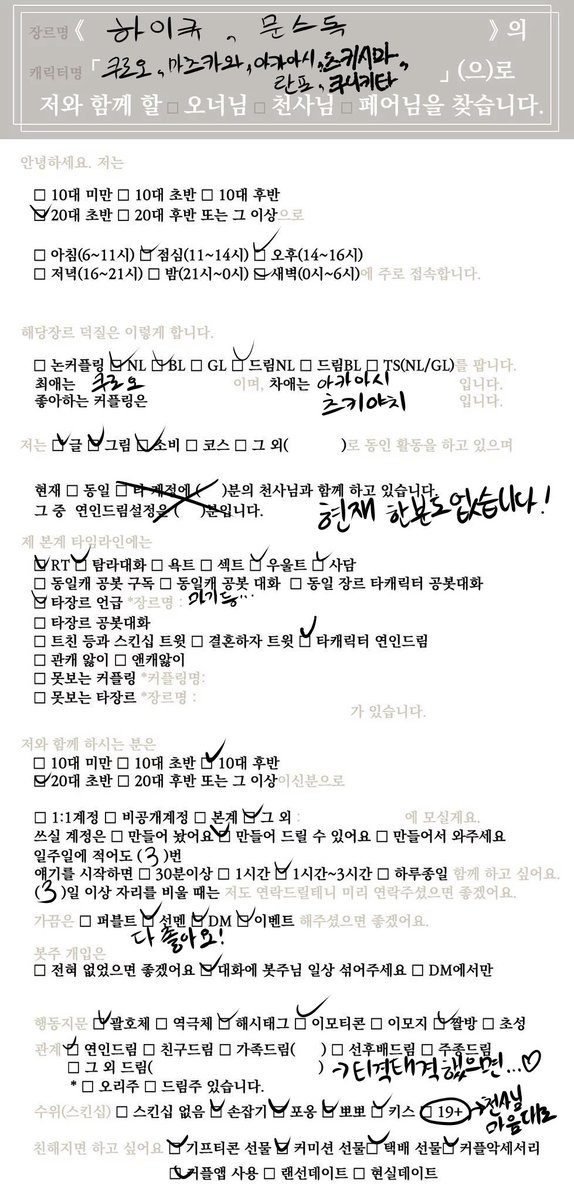 장르명 《 하이큐, 문스독 》의
캐릭터명 「 쿠로오, 마츠카와, 아카아시, 츠키시마, 란포, 쿠니키타 」(으)로
저와 함께 할 □ 오너님 □ 천사님 □ 페어님을 찾습니다.
안녕하세요. 저는
□ 10대 미만 □ 10대 초반 □ 10대 후반
☑ 20대 초반 □ 20대 후반 또는 그 이상으로
□ 아침(6~11시) ☑ 점심(11~14시) ☑ 오후(14~16시)
□ 저녁(16~21시) □ 밤(21시~0시) ☑ 새벽(0시~6시)에 주로 접속합니다.
해당장르 덕질은 이렇게 합니다.
□ 논커플링 ☑ NL ☑ BL □ GL ☑ 드림NL □ 드림BL □ TS(NL/GL)를 팝니다.
최애는 쿠로오 이며, 차애는 아카아시 입니다.
좋아하는 커플링은 츠키야치 입니다.
저는 ☑ 글 ☑ 그림 ☑ 소비 □ 코스 □ 그 외( )로 동인 활동을 하고 있으며
현재 □ 동일 □ 타 계정에 ( )분의 천사님과 함께 하고 있습니다.
그 중 연인드림설정은 ( )분입니다. 현재 한분도 없습니다!
제 본계 타임라인에는
☑ RT ☑ 탐라대화 □ 욕트 □ 섹트 ☑ 우울트 ☑ 사담
□ 동일캐 공봇 구독 □ 동일캐 공봇 대화 □ 동일 장르 타캐릭터 공봇대화
☑ 타장르 언급 *장르명 :
□ 타장르 공봇대화
□ 트친 등과 스킨십 트윗 □ 결혼하자 트윗 ☑ 타캐릭터 연인드림
□ 관캐 앓이 □ 앤캐앓이
□ 못보는 커플링 *커플링명:
□ 못보는 타장르 *장르명 :
가 있습니다.
저와 함께 하시는 분은
□ 10대 미만 □ 10대 초반 ☑ 10대 후반
☑ 20대 초반 □ 20대 후반 또는 그 이상이신분으로
□ 1:1계정 □ 비공개계정 □ 본계 ☑ 그 외 : 에 모실게요.
쓰실 계정은 □ 만들어 놨어요 ☑ 만들어 드릴 수 있어요 □ 만들어서 와주세요
일주일에 적어도 ( 3 )번
얘기를 시작하면 □ 30분이상 □ 1시간 ☑ 1시간~3시간 □ 하루종일 함께 하고 싶어요.
( 3 )일 이상 자리를 비울 때는 저도 연락드릴테니 미리 연락주셨으면 좋겠어요.
가끔은 □ 퍼블트 ☑ 선멘 ☑ DM ☑ 이벤트 해주셨으면 좋겠어요.
다 좋아요!
봇주 개입은
□ 전혀 없었으면 좋겠어요 ☑ 대화에 봇주님 일상 섞어주세요 □ DM에서만
행동지문 ☑ 괄호체 □ 역극체 ☑ 해시태그 ☑ 이모티콘 □ 이모지 ☑ 짤방 □ 초성
관계 ☑ 연인드림 □ 친구드림 □ 가족드림( ) □ 선후배드림 □ 주종드림
□ 그 외 드림( ) → 티격태격 했으면...♡
* □ 오리주 □ 드림주 있습니다.
수위(스킨십) □ 스킨십 없음 ☑ 손잡기 ☑ 포옹 ☑ 뽀뽀 ☑ 키스 □ 19+ → 천사님 마음대로
친해지면 하고 싶어요 ☑ 기프티콘 선물 ☑ 커미션 선물 ☑ 택배 선물 ☑ 커플악세서리
☑ 커플앱 사용 □ 랜선데이트 □ 현실데이트